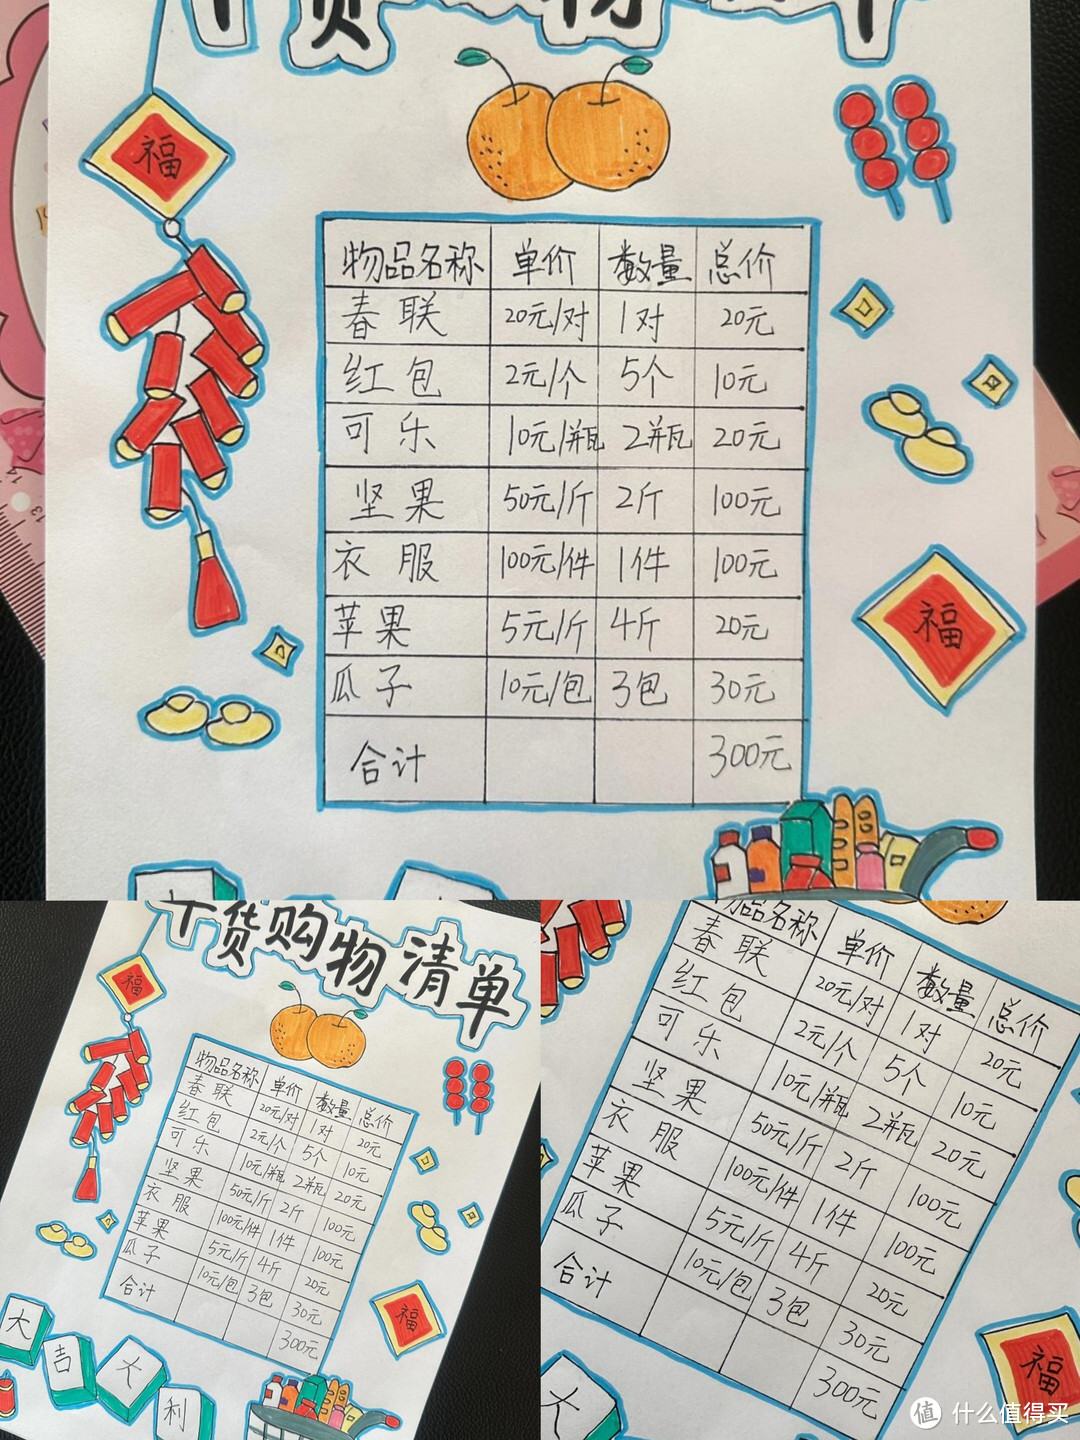 福
物品名称 单价 数量 总价
春联 20元/对 1对 20元
红包 2元/个 5个 10元
可乐 10元/瓶 2瓶 20元
坚果 50元/斤 2斤 100元
衣服 100元/件 1件 100元
苹果 5元/斤 4斤 20元
瓜子 10元/包 3包 30元
合计 300元
福
货购物清单
福
物品名称 单价 数量 总价
春联 20元/对 1对 20元
红包 2元/个 5个 10元
可乐 10元/瓶 2瓶 20元
坚果 50元/斤 2斤 100元
衣服 100元/件 1件 100元
苹果 5元/斤 4斤 20元
瓜子 10元/包 3包 30元
合计 300元
福
大吉大利
物品名称 单价 数量 总价
春联 20元/对 1对 20元
红包 2元/个 5个 10元
可乐 10元/瓶 2瓶 20元
坚果 50元/斤 2斤 100元
衣服 100元/件 1件 100元
苹果 5元/斤 4斤 20元
瓜子 10元/包 3包 30元
合计 300元
福
大
值 什么值得买